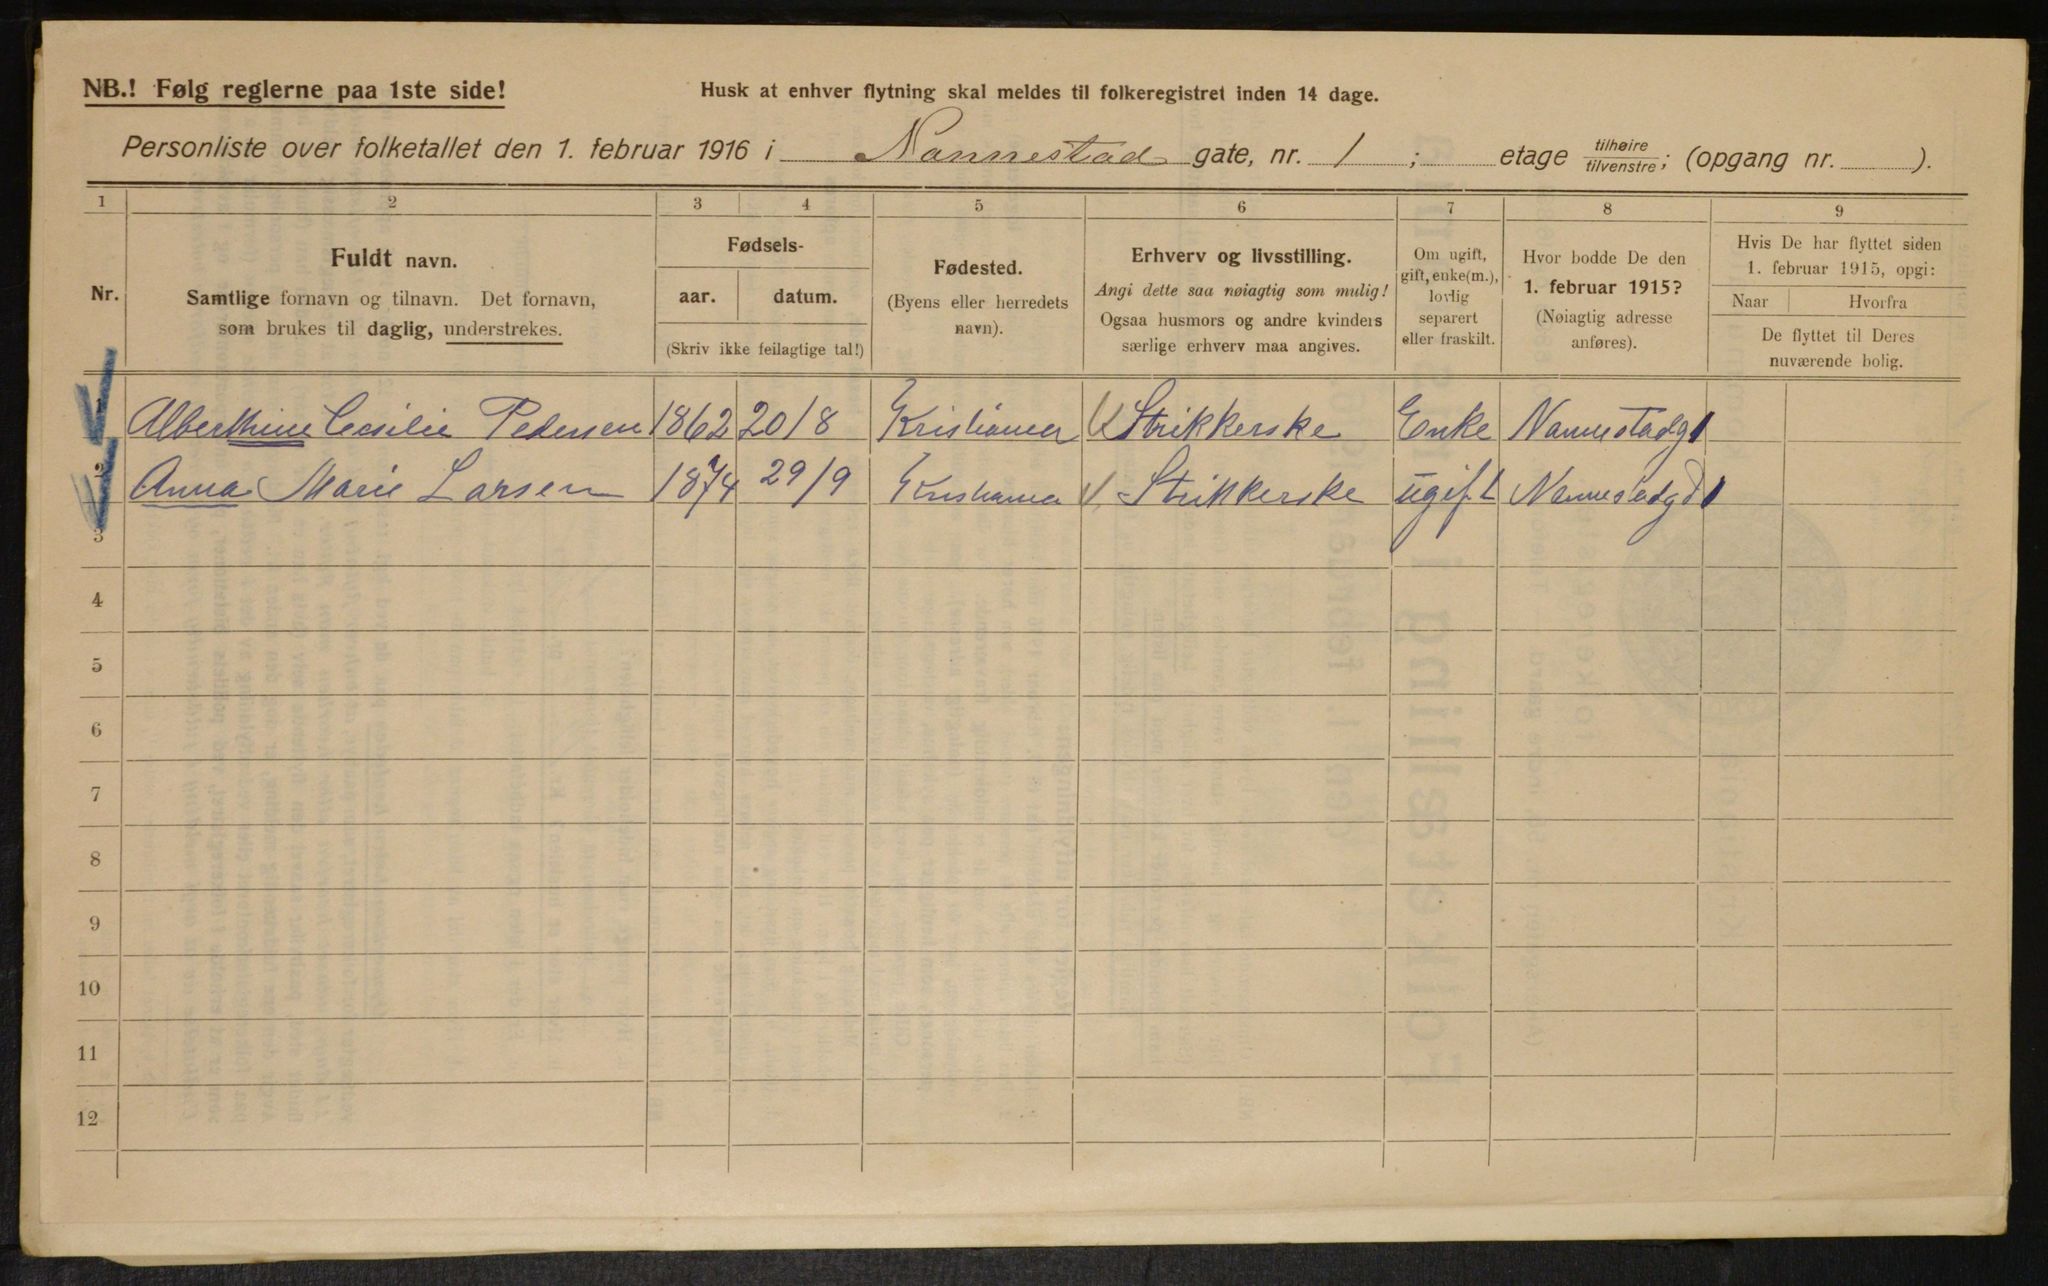 NB.! Følg reglerne paa 1ste side!
Husk at enhver flytning skal meldes til folkeregistret inden 14 dage.
Personliste over folketallet den 1. februar 1916 i Nannestad gate, nr. 1 ; etage tilhøire/tilvenstre; (opgang nr. ).
1 2 3 4 5 6 7 8 9
Nr.
Fuldt navn.
Samtlige fornavn og tilnavn. Det fornavn,
som brukes til daglig, understrekes.
Fødsels-
aar. datum.
(Skriv ikke feilagtige tal!)
Fødested.
(Byens eller herredets
navn).
Erhverv og livsstilling.
Angi dette saa nøiagtig som mulig!
Ogsaa husmors og andre kvinders
særlige erhverv maa angives.
Om ugift,
gift, enke(m.),
lovlig
separert
eller fraskilt.
Hvor bodde De den
1. februar 1915?
(Nøiagtig adresse
anføres).
Hvis De har flyttet siden
1. februar 1915, opgi:
Naar Hvorfra
De flyttet til Deres
nuværende bolig.
Alberthine Cecilie Pedersen 1862 20/8 Kristiania Strikkerske Enke Nannestadg 1
2 Anna Marie Larsen 1874 29/9 Kristiania Strikkerske ugift Nannestadgd 1
3
4
5
6
7
8
9
10
11
12